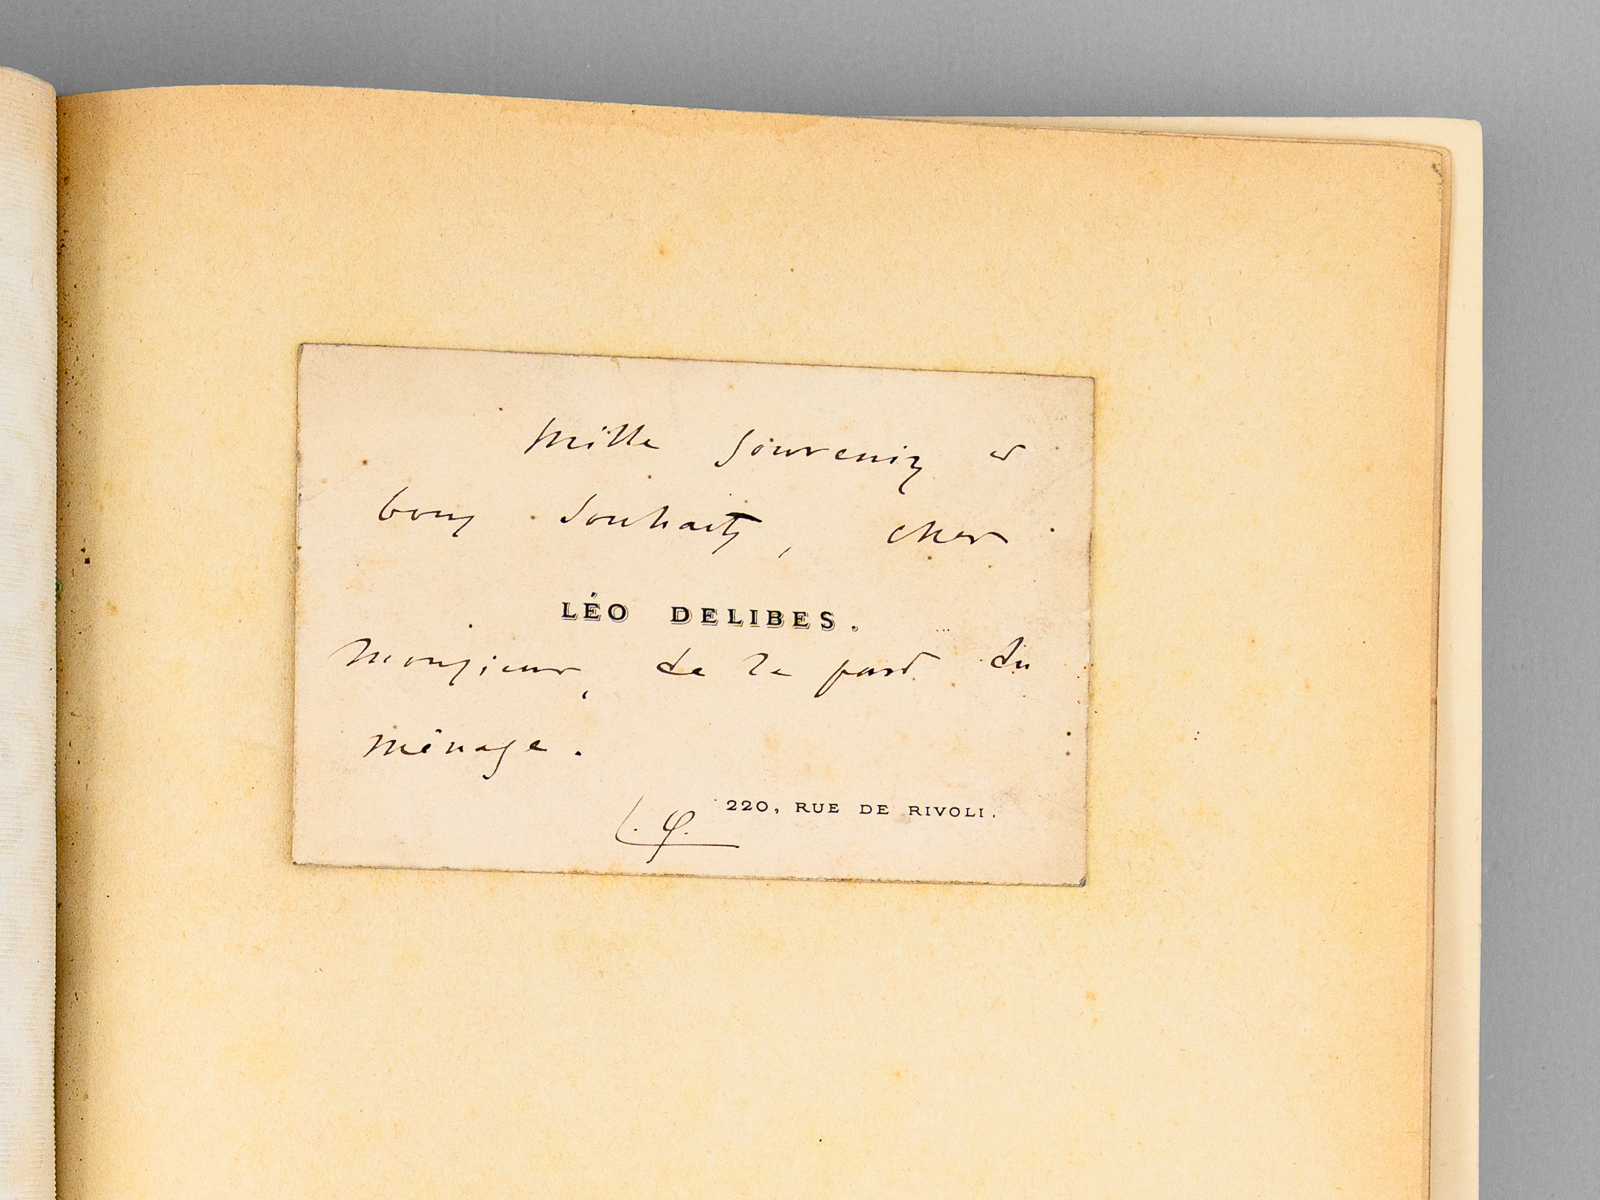 Mille souvenirs et
bons souhaits, cher
LÉO DELIBES.
Monsieur, de la part du
ménage.
220, RUE DE RIVOLI.
L. D.